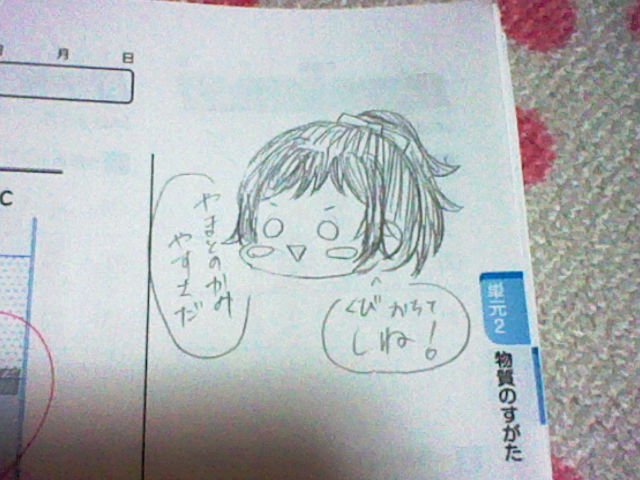 月 日
C
やまとのかみ
やすさだ
くびおちて
しね!
単元2
物質のすがた